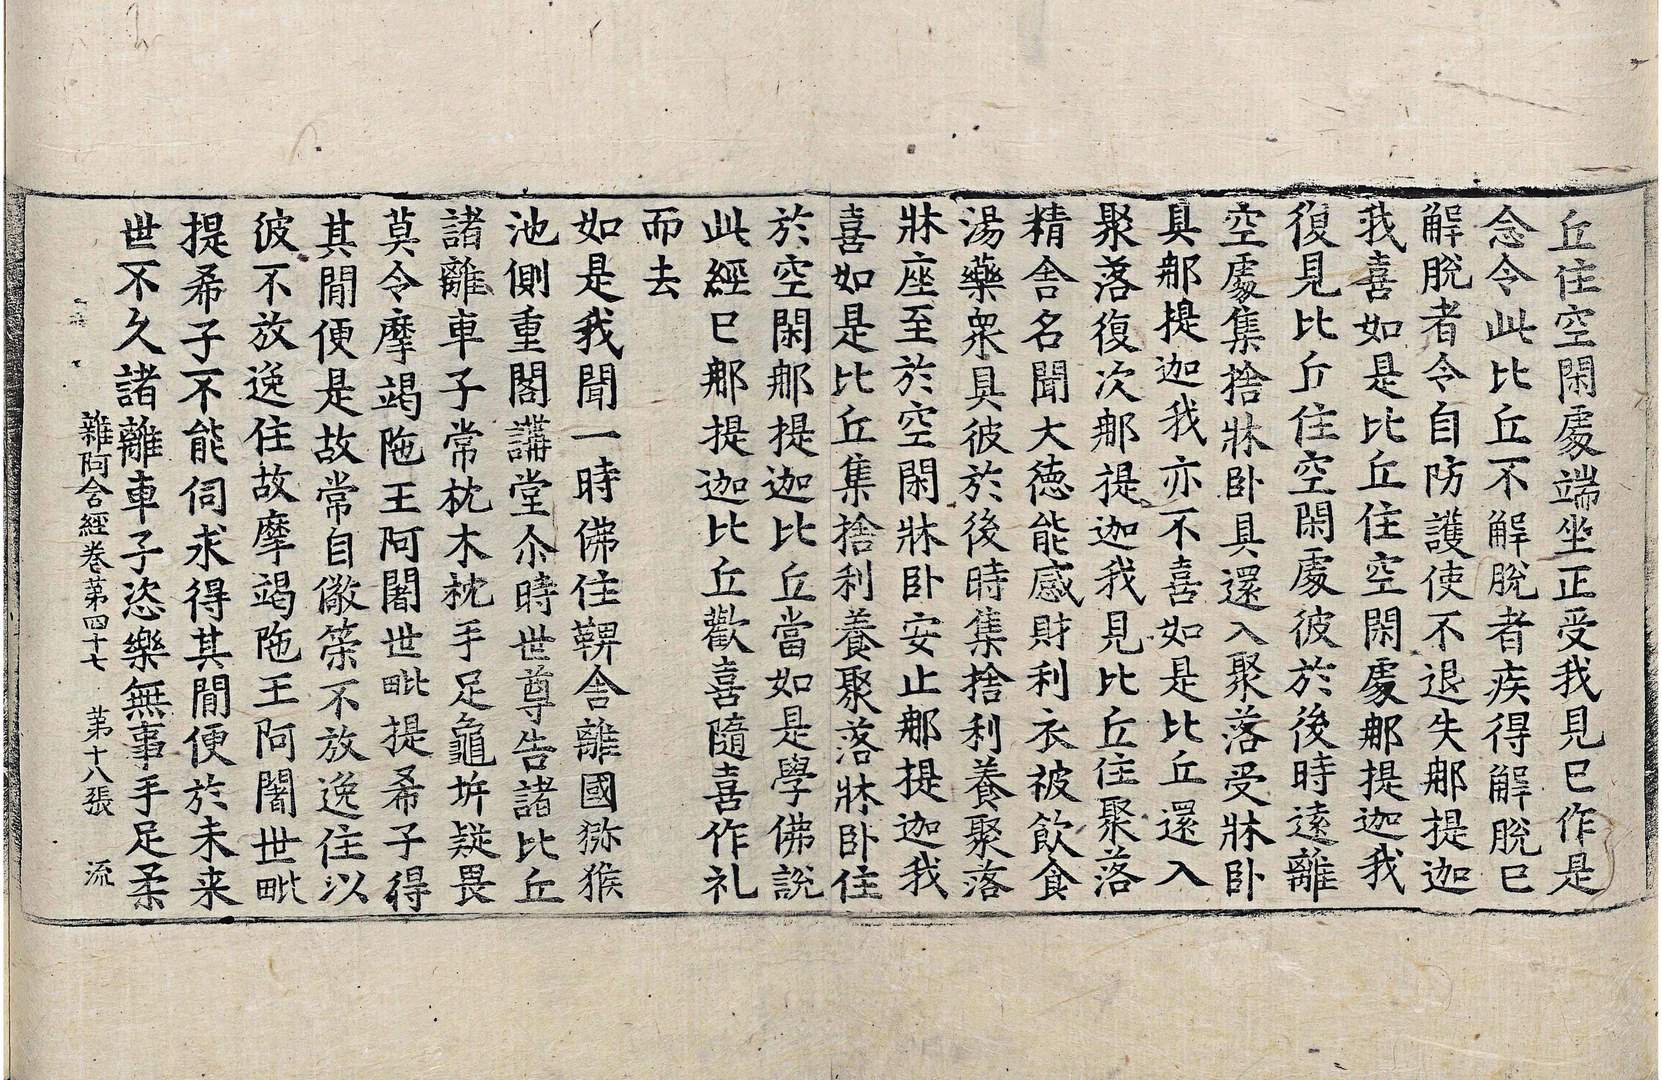 丘住空閑處端坐正受我見已作是
念令此比丘不解脫者疾得解脫已
解脫者令自防護使不退失那提迦
我喜如是比丘住空閑處那提迦我
復見比丘住空閑處彼於後時遠離
空處集捨牀卧具還入聚落受牀卧
具那提迦我亦不喜如是比丘還入
聚落復次那提迦我見比丘住聚落
精舍名聞大德能感財利衣被飲食
湯藥衆具彼於後時集捨利養聚落
牀座至於空閑牀卧安止那提迦我
喜如是比丘集捨利養聚落牀卧住
於空閑那提迦比丘當如是學佛說
此經已那提迦比丘歡喜隨喜作礼
而去
如是我聞一時佛住鞞舍離國獼猴
池側重閣講堂尒時世尊告諸比丘
諸離車子常枕木枕手足龜坼疑畏
莫令摩竭陁王阿闍世毗提希子得
其間便是故常自儆策不放逸住以
彼不放逸住故摩竭陁王阿闍世毗
提希子不能伺求得其間便於未来
世不久諸離車子恣樂無事手足柔
雜阿含經卷苐四十七 苐十八張 流